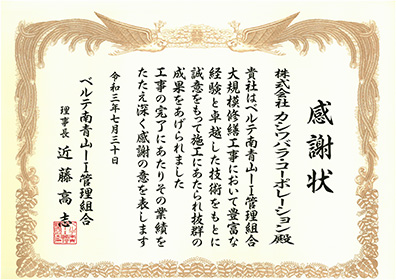 感謝状
株式会社 カシワバラ・コーポレーション殿
貴社はベルテ南青山ーⅠ管理組合
大規模修繕工事において豊富な
経験と卓越した技術をもとに
誠意をもって施工にあたられ抜群の
成果をあげられました
工事の完了にあたりその業績を
たたえ深く感謝の意を表します
令和三年七月三十日
ベルテ南青山ーⅠ管理組合
理事長 近藤高志